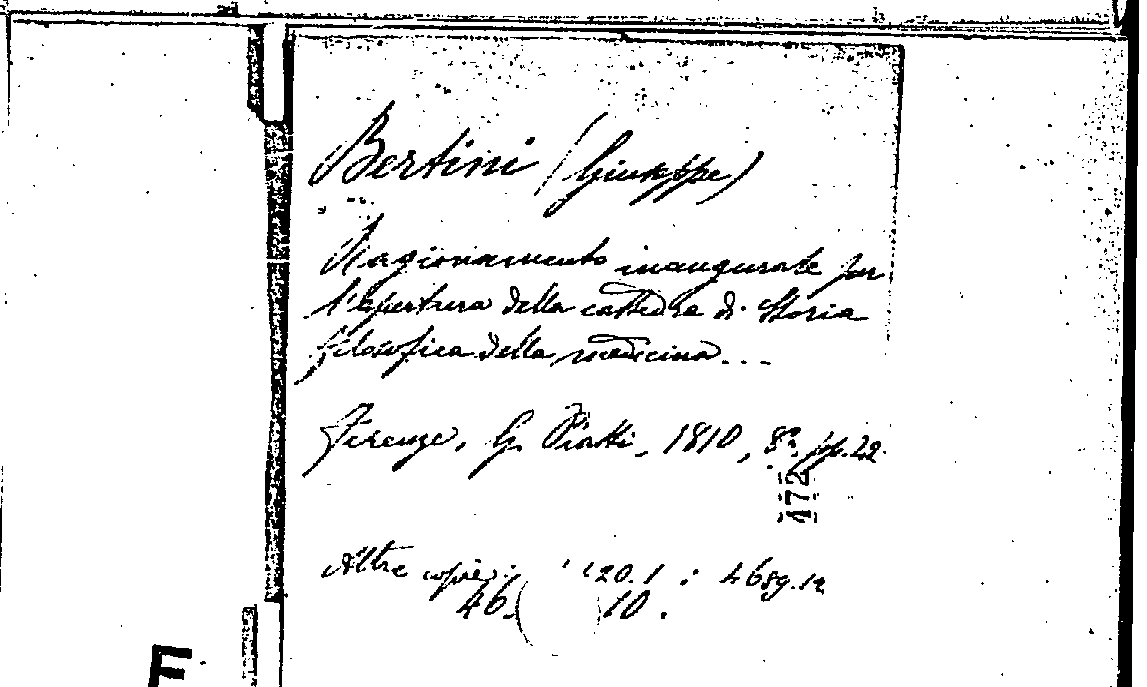 Bertini (Giuseppe)
Ragionamento inaugurale per
l'apertura della cattedra di Storia
filosofica della medicina...
Firenze, G. Piatti, 1810, 8º, pp. 22.
472
Altre copie: 120.1; 4689.12
46. 10.
F